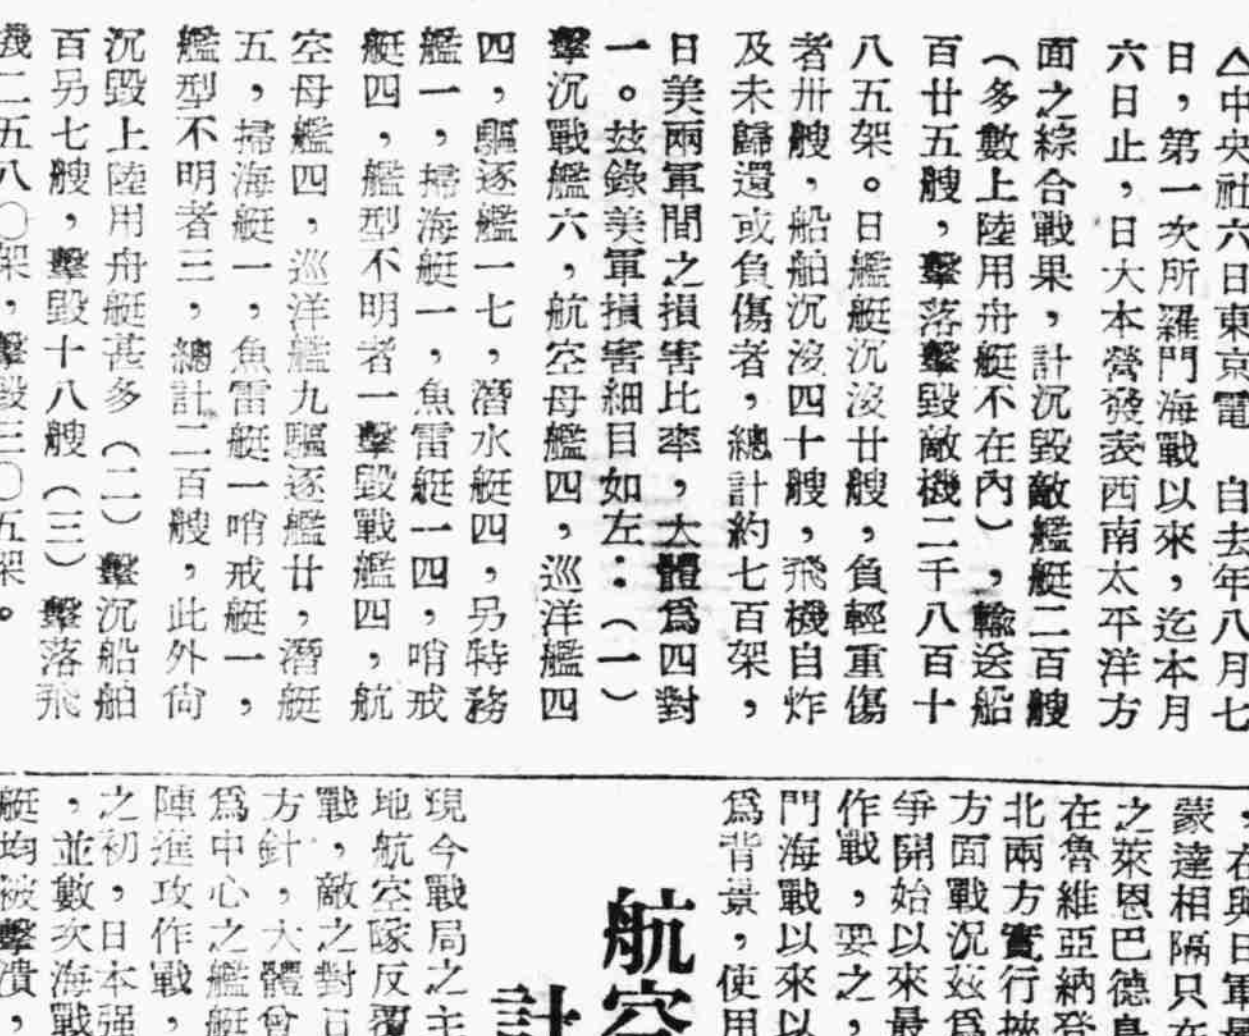 △中央社六日東京電　自去年八月七
日，第一次所羅門海戰以來，迄本月
六日止，日大本營發表西南太平洋方
面之綜合戰果，計沉毀敵艦艇二百艘
（多數上陸用舟艇不在內），輸送船
百廿五艘，擊落擊毀敵機二千八百十
八五架。日艦艇沉沒廿艘，負輕重傷
者卅艘，船舶沉沒四十艘，飛機自炸
及未歸還或負傷者，總計約七百架，
日美兩軍間之損害比率，大體爲四對
一。茲錄美軍損害細目如左：（一）
擊沉戰艦六，航空母艦四，巡洋艦四
四，驅逐艦一七，潛水艇四，另特務
艦一，掃海艇一，魚雷艇一四，哨戒
艇四，艦型不明者一擊毀戰艦四，航
空母艦四，巡洋艦九驅逐艦廿，潛艇
五，掃海艇一，魚雷艇一哨戒艇一，
艦型不明者三，總計二百艘，此外尙
沉毀上陸用舟艇甚多（二）擊沉船舶
百另七艘，擊毀十八艘（三）擊落飛
機二五八〇架，擊毀三〇五架。
，在與日軍
蒙達相隔只
之萊恩巴德島
在魯維亞納
北兩方實行挾
方面戰況茲爲
爭開始以來最
作戰，要之，
門海戰以來以
爲背景，使用
航空
計
現今戰局之主
地航空隊反覆
戰，敵之對日
方針，大體會
爲中心之艦艇
陣進攻作戰，
之初，日本强
，並數次海戰
艇均被擊潰，